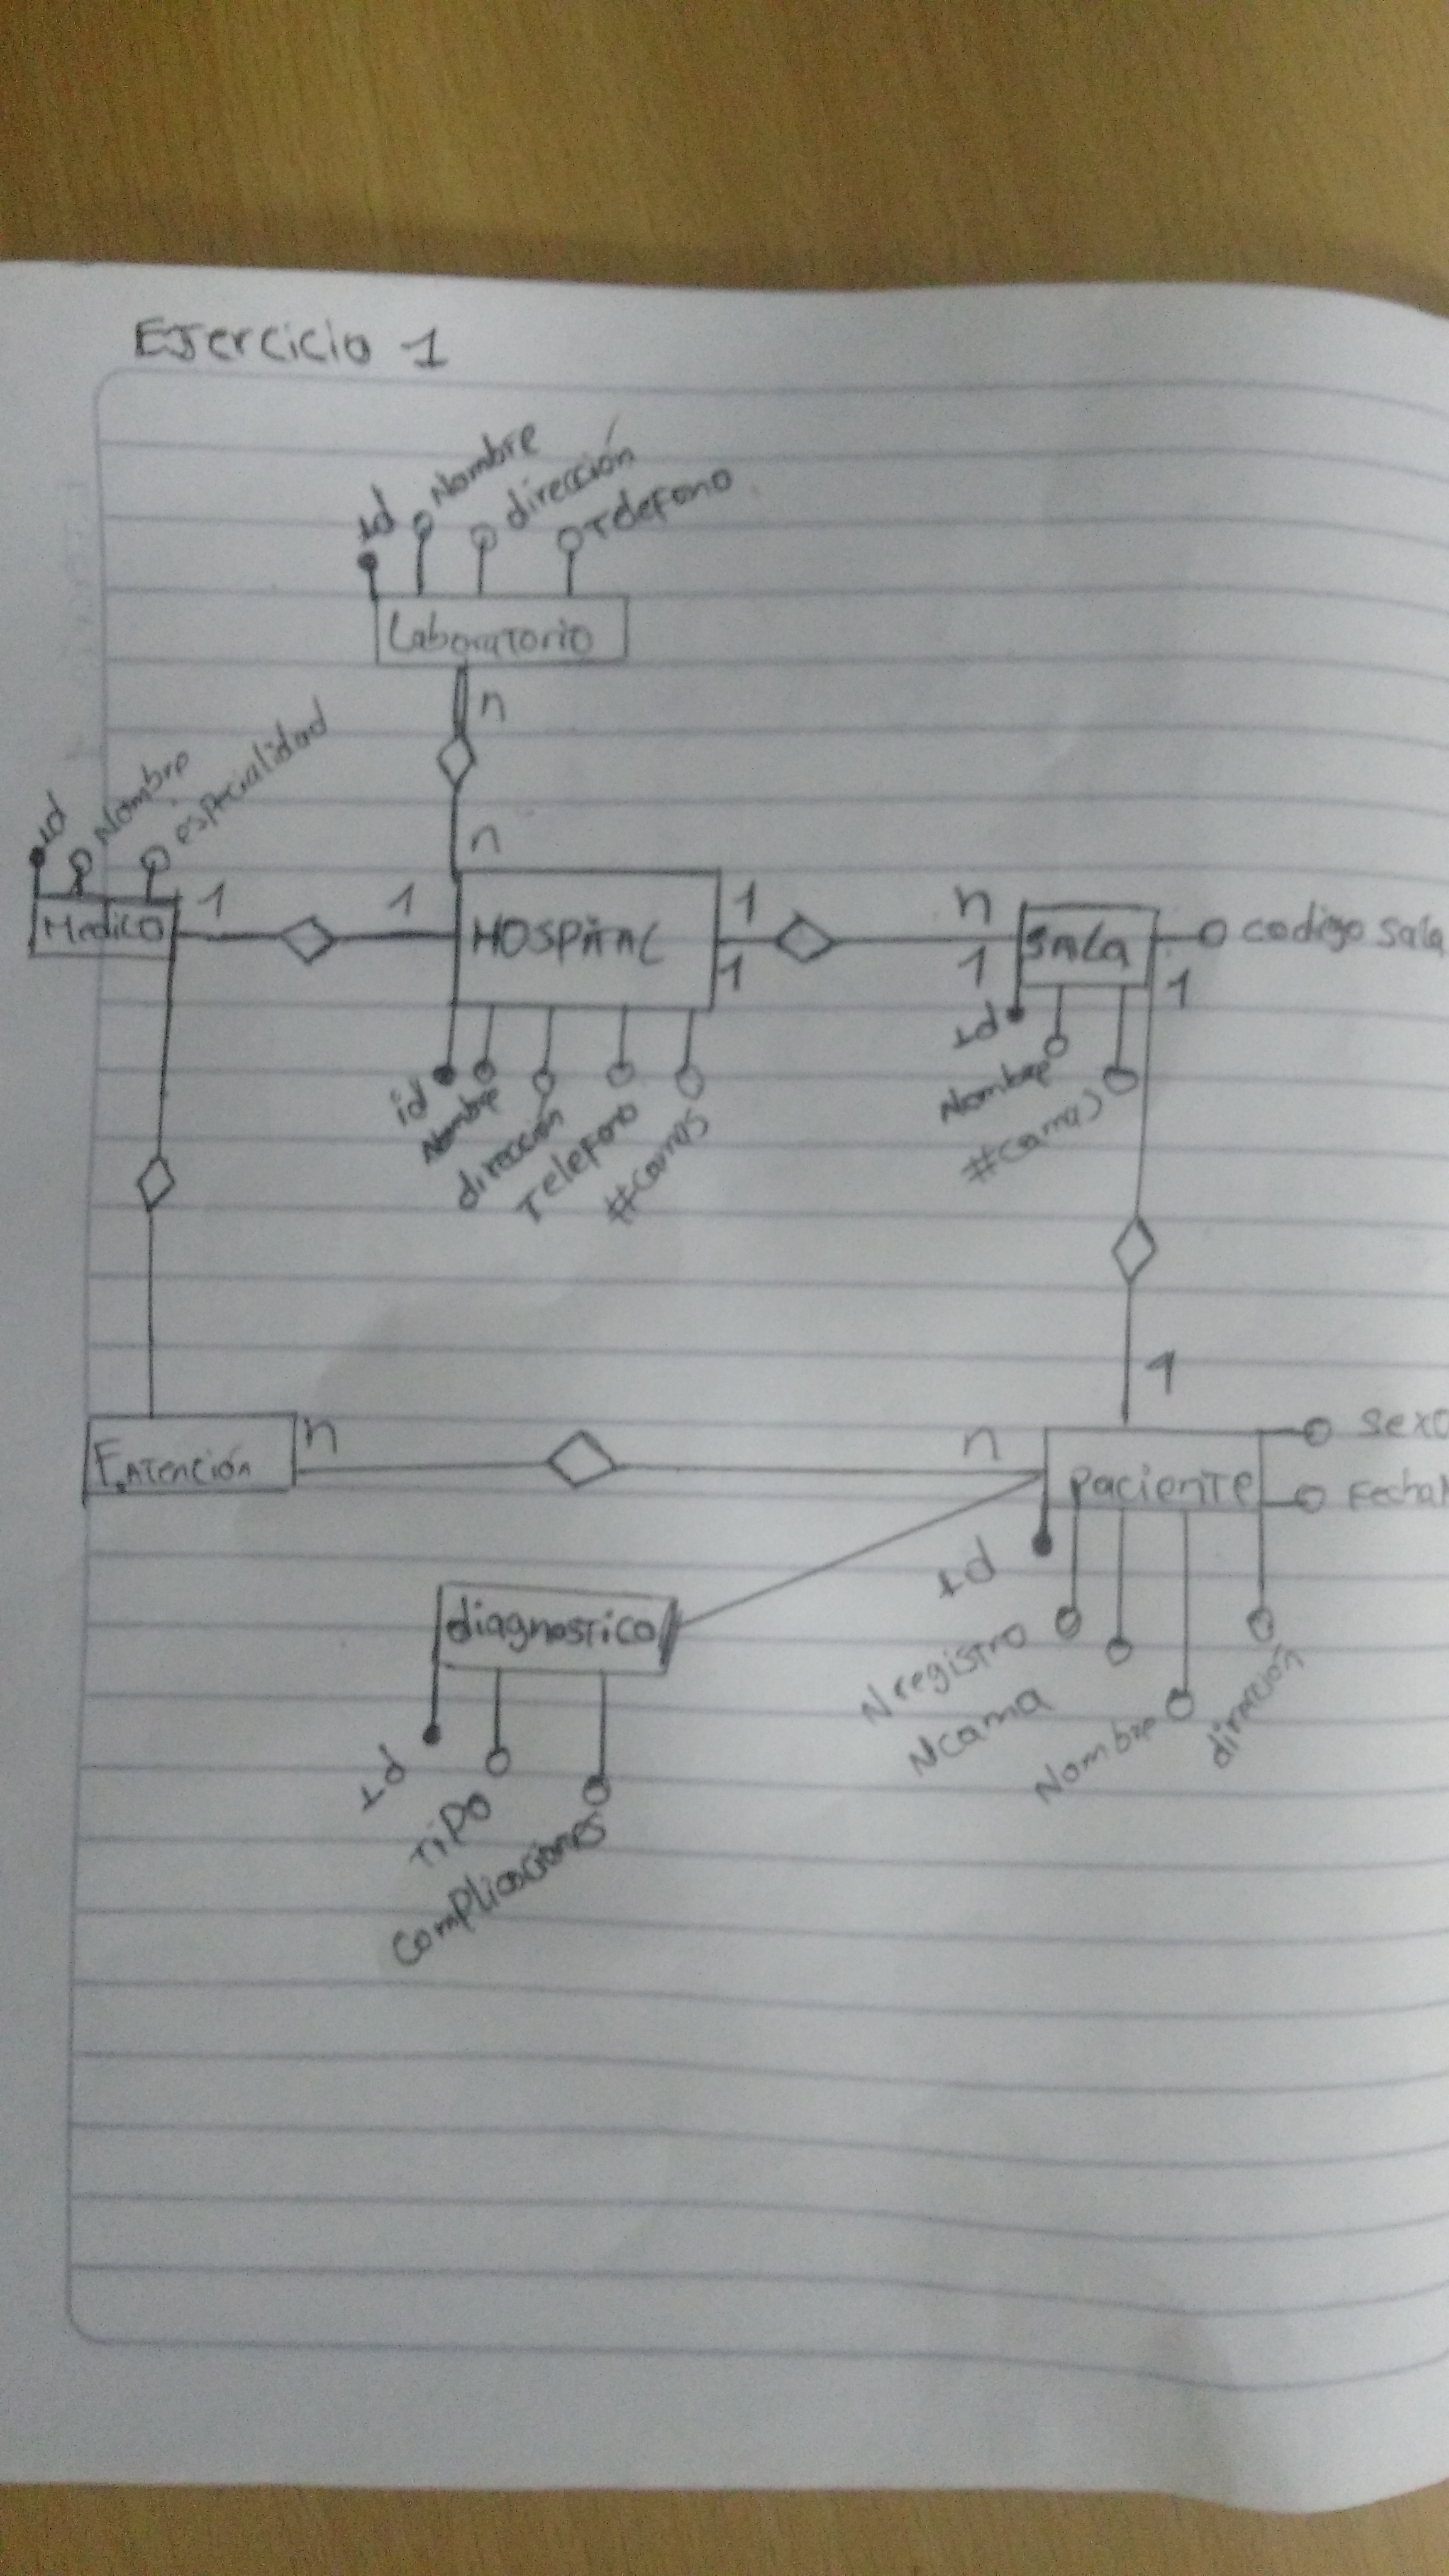 Ejercicio 1
Id
Nombre
dirección
Telefono
Laboratorio
n
n
Id
Nombre
especialidad
Medico
1
1
HOSPITAL
1
1
n
1
SALA
codigo sala
1
id
Nombre
dirección
Telefono
#camas
Id
Nombre
#camas
1
F.Atención
n
n
paciente
sexo
Fecha
Id
N registro
N cama
Nombre
dirección
diagnostico
Id
Tipo
complicaciones